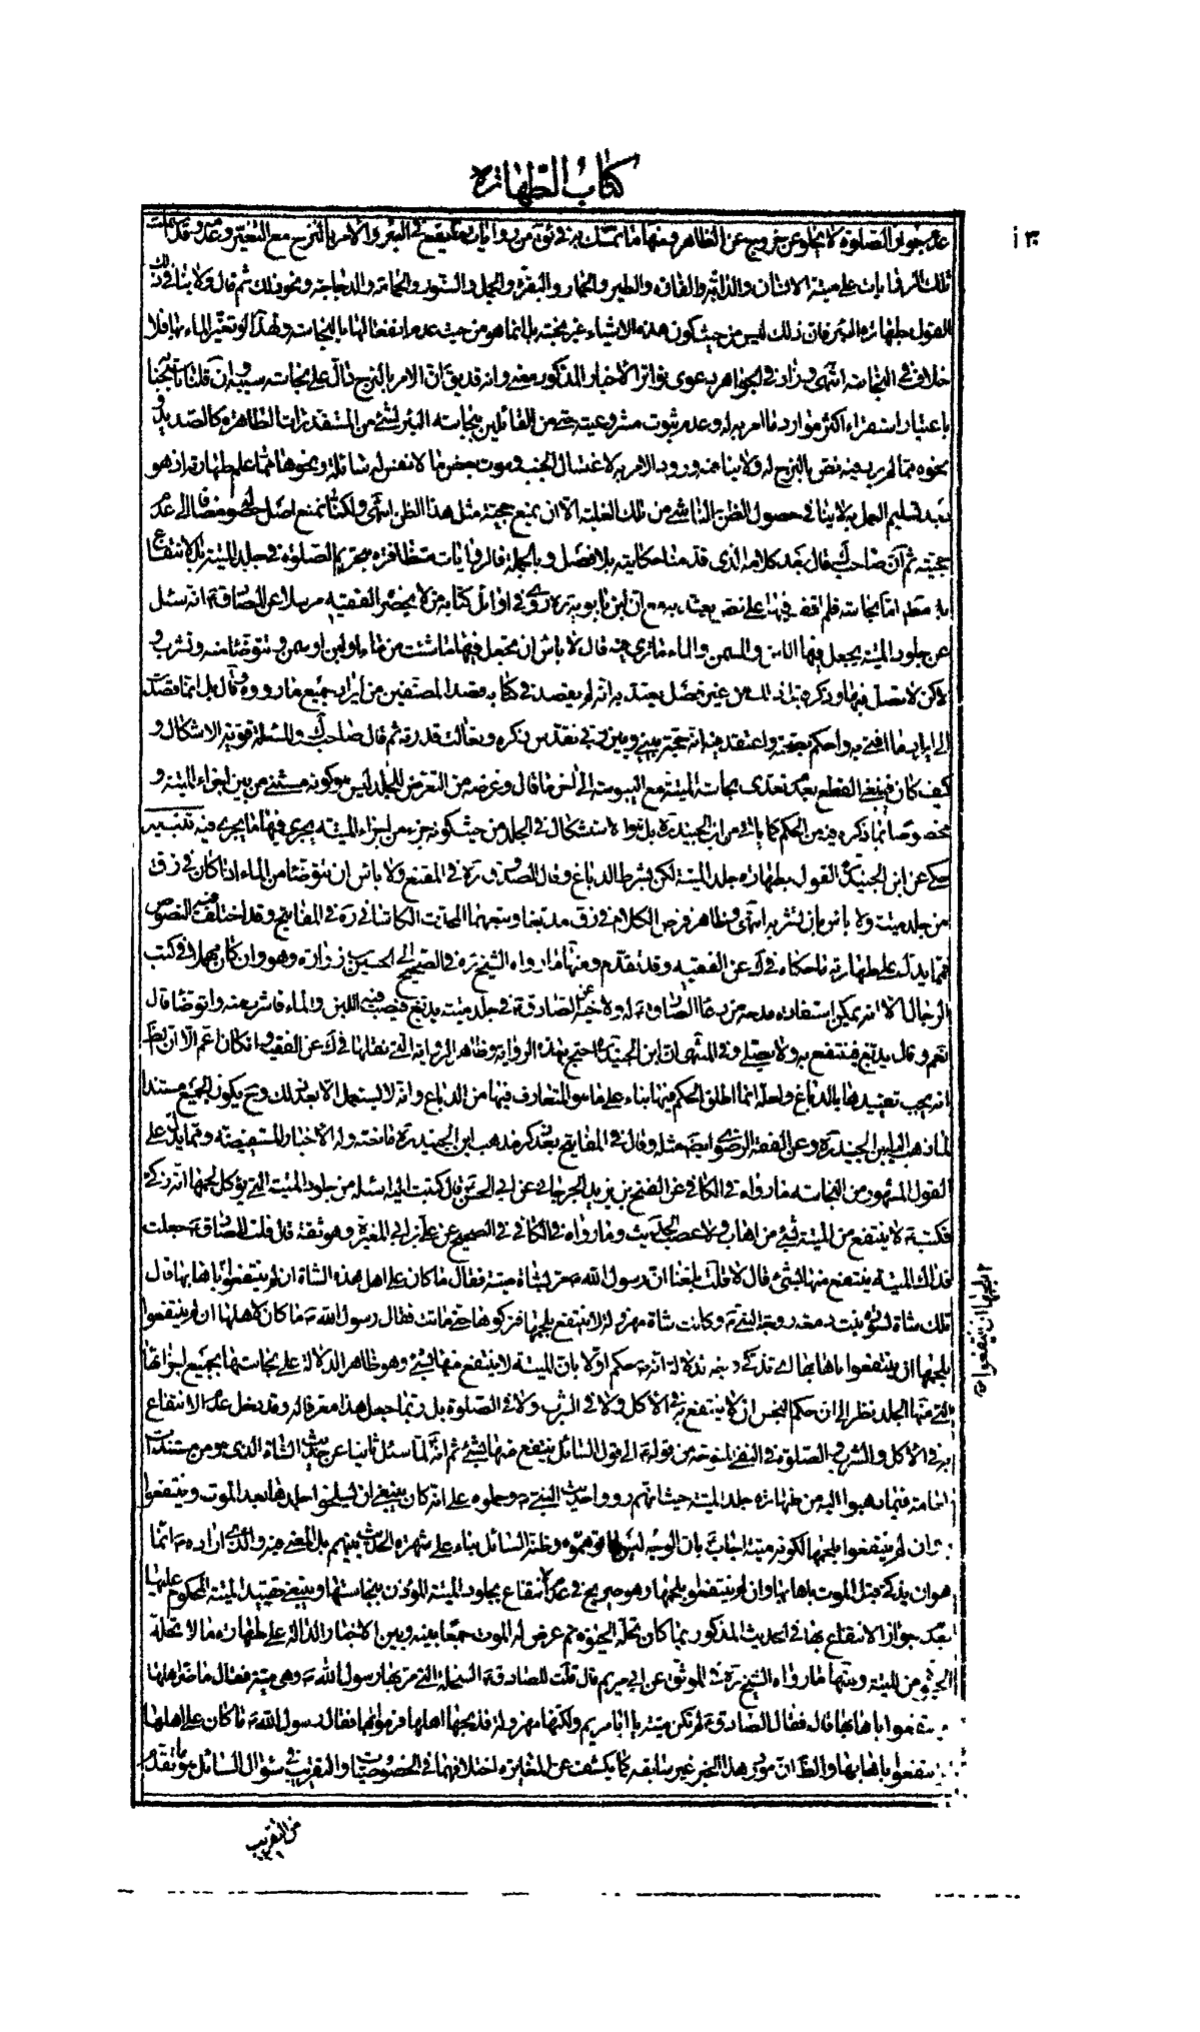 كتاب الطهارة
١٣٠
عدم جواز الصلوة لا يخلو عن خروج عن الظاهر ومنها ما تمسّك به في من روايات ما يقع في البئر والامر بالنزح مع التغيّر وعدمه وقد اشتملت
تلك الروايات على ميتة الانسان والدابّة والفارة والطير والحمار والبقرة والجمل والسنّور والحمامة والدجاجة ونحو ذلك ثم قال ولا ينافي ذلك
القول بطهارة البئر فان ذلك ليس من حيث كون هذه الاشياء غير نجسة بل انما هو من حيث عدم انفعالها بالنجاسة ولهذا لو تغيّر الماء بها فلا
خلاف في النجاسة انتهى وزاد في الجواهر دعوى تواتر الاخبار المذكورة معنى وانه قد يق ان الامر بالنزح دالّ على نجاسته سيّما وان قلنا
باعتبار استقراء اكثر موارد ما امر به له وعدم ثبوت مشروعيته حتى من القائلين بنجاسة البئر لشئ من المستقذرات الطاهرة كالصديد و
نحوه مما لم يرد فيه نص بالنزح له ولا ينافيه ورود الامر به لاغتسال الجنب وموت بعض ما لا نفس له سائلة ونحوها مما علم طهارته اذ هو
بعد تسليم العمل به لا ينافي حصول الظن الناشئ من تلك الغلبة الا ان يمنع حجية مثل هذا الظن انتهى ولكنا نمنع اصل حصوله مضافا الى عدم
حجيته ثم ان صاحب ك قال بعد كلامه الذي قدمنا حكايته بلا فصل وبالجملة فالروايات متظافرة بتحريم الصلوة في جلد الميتة بل الانتفاع
به مطلقا اما نجاسته فلم اقف فيها على نص يعتد به مع ان ابن بابويه ره روى في اوائل كتابه من لا يحضره الفقيه مرسلا عن الصادق ع انه سئل
عن جلود الميتة يجعل فيها اللبن والسمن والماء ما ترى فيه قال لا باس ان تجعل فيها ما شئت من ماء او لبن او سمن وتتوضا منه وتشرب و
لكن لا تصلّ فيها وذكره قبل ذلك من غير فصل يعتد به انه لم يقصد في كتابه قصد المصنفين من ايراد جميع ما رووه قال بل انما قصدت
الى ايراد ما افتي به واحكم بصحته واعتقد فيه انه حجة بيني وبين ربي تقدس ذكره وتعالت قدرته ثم قال صاحب ك والمسئلة قوية الاشكال و
كيف كان فينبغي القطع بعدم تعدى نجاسة الميتة مع اليبوسة الى اخر ما قال وغرضه من التعرض للجلد ليس هو كونه مستثنى من بين اجزاء الميتة و
مخصوصا بما ذكره فيه من الحكم كما ياتي من ابن الجنيد ره بل هو الاستشكال في الجلد من حيث كونه جزء من اجزاء الميتة يجري فيها ما يجري فيه تنبيه
حكي عن ابن الجنيد ره القول بطهارة جلد الميتة لكن بشرط الدباغ وقال الصدوق ره في المقنع ولا باس ان تتوضا من الماء اذا كان في زق
من جلد ميتة ولا باس بان تشربه انتهى وظاهر فرض الكلام في زق مدبغا وتبعهما المحدث الكاشاني ره في المفاتيح وقد اختلفت فيه النصوص
فمما يدل على طهارته ما حكاه في ك عن الفقيه وقد تقدم ومنها ما رواه الشيخ ره في الصحيح الى الحسين بن زرارة وهو وان كان مهملا في كتب
الرجال الا انه يمكن استفادة مدحه من دعاء الصادق ع له ولاخيه عن الصادق ع في جلد ميتة يدبغ فيصب فيه اللبن والماء فاشرب منه واتوضا قال
نعم وقال يدبغ فينتفع به ولا يصلى وفي المنتهى ان ابن الجنيد ره احتج بهذه الرواية وظاهر الرواية التي نقلها في ك عن الفقيه وان كان اعم الا ان الظ
انه يجب تقييدها بالدباغ ولعله انما اطلق الحكم فيها بناء على ما هو المتعارف فيها من الدباغ وانه لا يستعمل الا بعد ذلك وح يكون الجميع مستندا
لما ذهب اليه ابن الجنيد ره وعن الفقه الرضوي ايضا مثله وقال في المفاتيح بعد ذكر مذهب ابن الجنيد ره مانصه وله الاخبار المستفيضة ومما يدل على
القول المشهور من النجاسة ما رواه في الكافي عن الفتح بن يزيد الجرجاني عن ابي الحسن ع قال كتبت اليه اسئله من جلود الميتة التي يؤكل لحمها انه ذكي
فكتب ع لا ينتفع من الميتة شئ من اهاب ولا عصب الحديث وما رواه في الكافي في الصحيح عن علي بن ابي المغيرة وهو ثقة قال قلت للصادق ع جعلت
فداك الميتة ينتفع منها بشئ قال لا قلت بلغنا ان رسول الله ص مر بشاة ميتة فقال ما كان على اهل هذه الشاة ان لم ينتفعوا باهابها قال
تلك شاة لسودة بنت زمعة زوجة النبي ص وكانت شاة مهزولة لا ينتفع بلحمها فتركوها حتى ماتت فقال رسول الله ص ما كان لاهلها ان لم ينتفعوا
بلحمها ان ينتفعوا باهابها اي تذكى وجه الدلالة انه ع حكم اولا بان الميتة لا ينتفع منها بشئ وهو ظاهر الدلالة على نجاستها بجميع اجزائها
التي منها الجلد نظرا الى ان حكم النجس ان لا ينتفع به في الاكل ولا في الشرب ولا في الصلوة بل ربما جعل هذا معرفا له وقد دخل عدم الانتفاع
به في الاكل والشرب والصلوة في النفي المتوجه من قوله ع الى قول السائل ينتفع منها بشئ ثم انه لما سئل ثانيا عن حديث الشاة الذي هو من مستندات
العامة فيما ذهبوا اليه من طهارة جلد الميتة حيث انهم رووا حديث النبي ص وحملوه على انه كان ينبغي ان يسلخوا جلدها بعد الموت وينتفعوا
به وان لم ينتفعوا بلحمها لكونه ميتة اجاب ع بان الوجه ليس ما توهموه وظنه السائل بناء على شهرة الحديث بينهم بل المعنى فيه والذي اراده ص انما
هو ان يذكى قبل الموت باهابها وان لم ينتفعوا بلحمها وهو صريح في عدم الانتفاع بجلود الميتة المؤذن بنجاستها وينبغي تقييد الميتة المحكوم عليها
بعدم جواز الانتفاع بها في الحديث المذكور بما كان تحله الحيوة ثم عرض له الموت جمعا بينه وبين الاخبار الدالة على طهارة ما لا تحله
الحيوة من الميتة ومنها ما رواه الشيخ ره في الموثق عن ابي مريم قال قلت للصادق ع السخلة التي مر بها رسول الله ص وهي ميتة فقال ما ضر اهلها
لو انتفعوا باهابها قال فقال الصادق ع لم تكن ميتة يا ابا مريم ولكنها مهزولة فذبحها اهلها فرموا بها فقال رسول الله ص ما كان على اهلها
لو انتفعوا باهابها والظ ان مورد هذا الخبر غير سابقه كما يكشف عن المغايرة اختلافهما في الخصوصيات والتقريب في سؤال السائل هو ما تقدم
بلحمها ان ينتفعوا
من التقريب